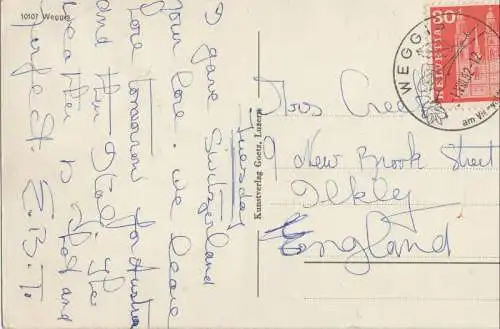 10107 Weggis
Tuesday
I gave Switzerland
your love. We leave
here tomorrow for Austria
and then Italy. The
weather is good and
perfect. E.B.T.
Kunstverlag Goetz, Luzern
HELVETIA
30
WEGGIS
am Vi
Miss
9 New Brook Street
Ilkley
England